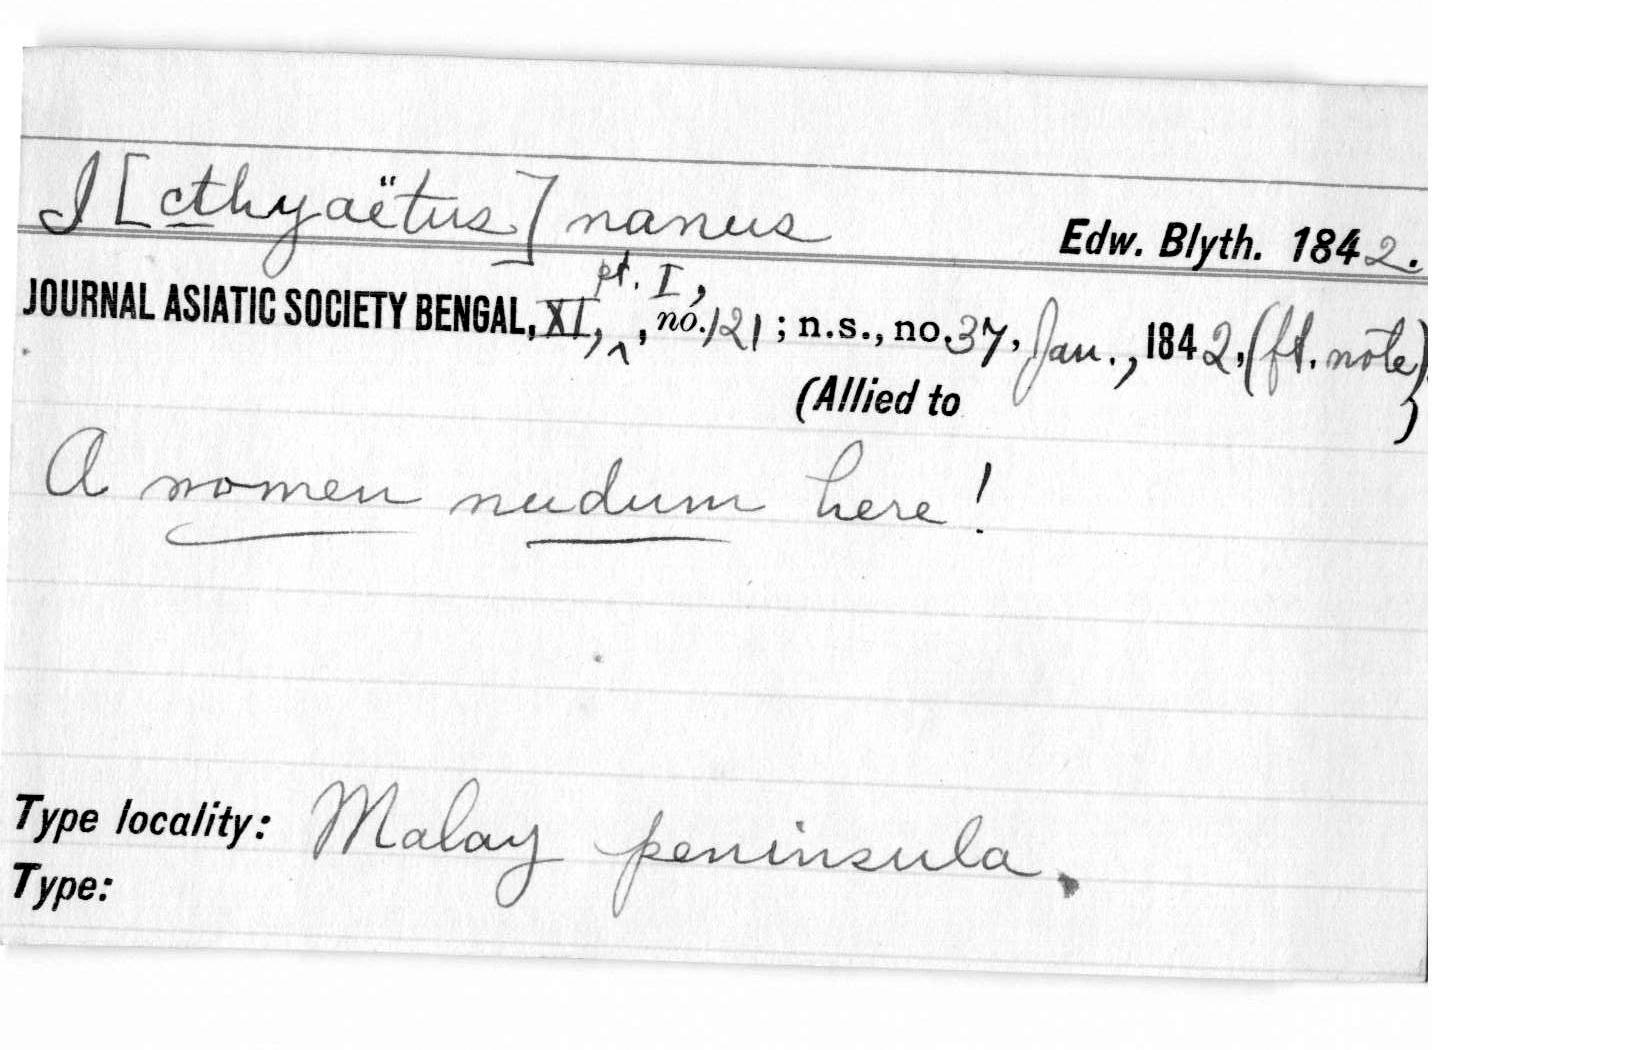 I[cthyaëtus] nanus Edw. Blyth. 1842.
JOURNAL ASIATIC SOCIETY BENGAL, XI, pt. I, , no. 121 ; n.s., no. 37, Jan., 1842, (ft. note).
(Allied to )
A nomen nudum here!
Type locality: Malay peninsula.
Type: